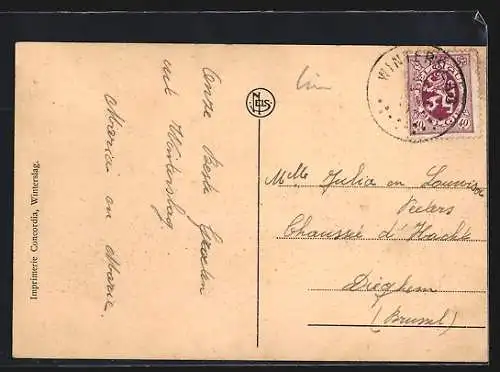 Imprimerie Concordia, Winterslag.
Onze Beste Groeten
uit Winterslag.
Maria en Marie.
NELS
WINTERSLAG
BELGIQUE
40 40
Melle Julia en Louwisa
Peeters
Chaussée d'Haecht
Dieghem
(Brussel)